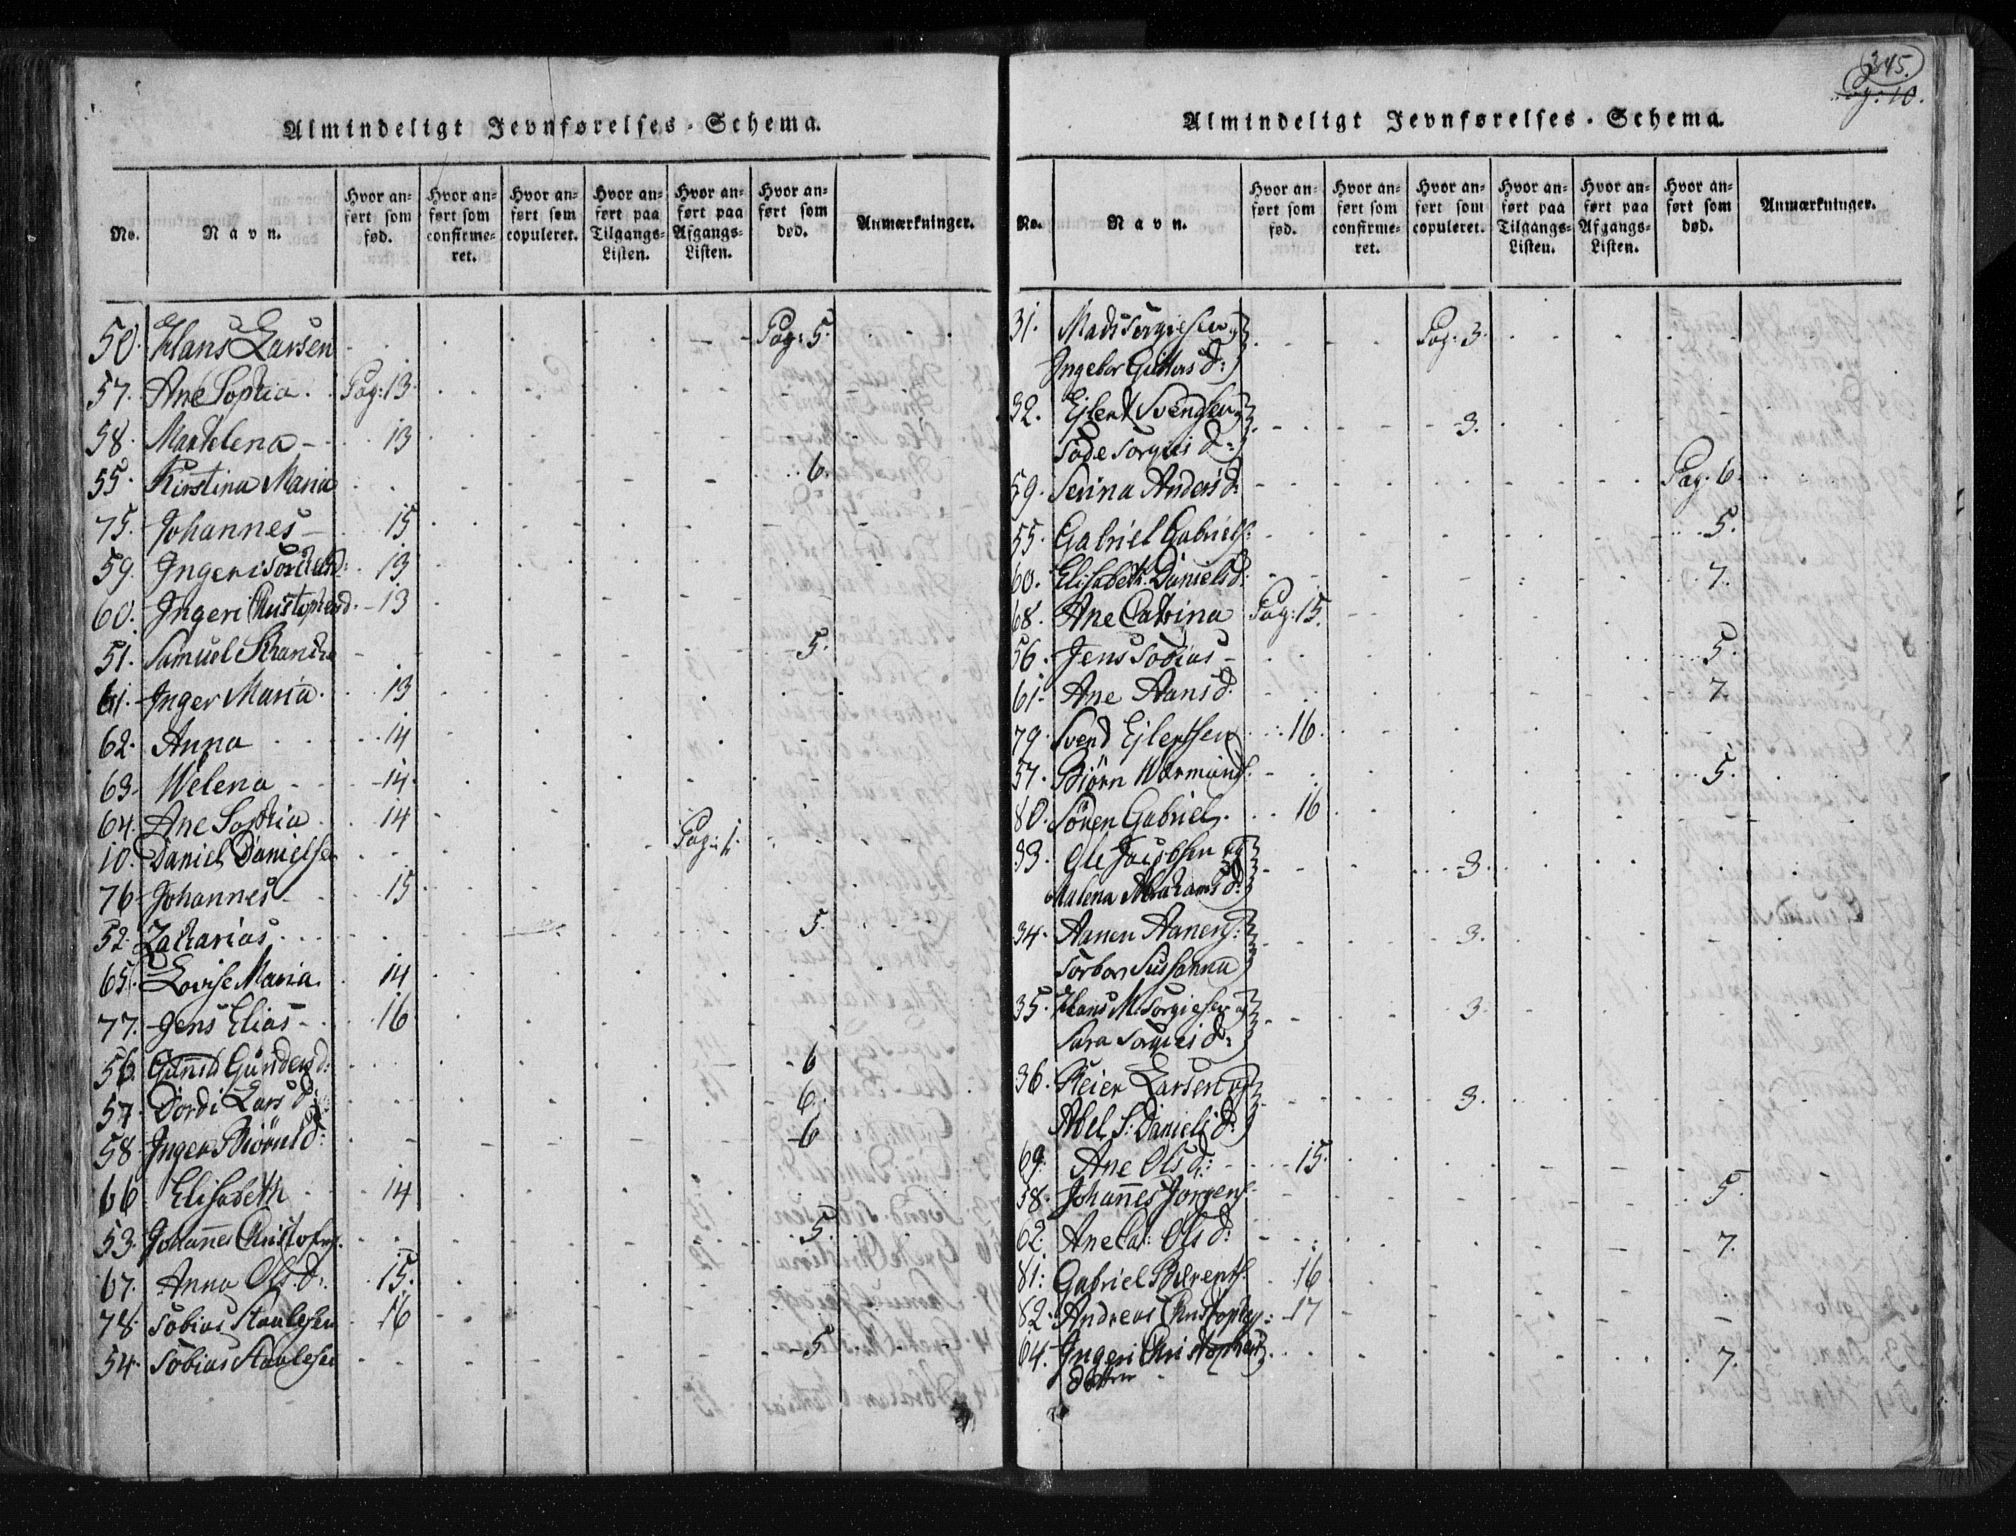 345.
Pag: 10.
Almindeligt Jevnførelses-Schema.
No. Navn. Hvor anført som fød. Hvor anført som confirmeret. Hvor anført som copuleret. Hvor anført paa Tilgangs-Listen. Hvor anført paa Afgangs-Listen. Hvor anført som død. Anmærkninger.
50. Hans Larsen Pag: 5.
57. Ane Sophia Pag: 13.
58. Marthe Lena 13
55. Kirstina Maria 6.
75. Johannes 15
59. Ingeri 13
60. Ingeri Christophersd. 13
51. Samuel 5.
61. Inger Maria 13
62. Anna 14
63. Helena 14.
64. Ane Sophia 14
10. Daniel Danielsen Pag: 1.
76. Johannes 15
52. Zakarias 5.
65. Lovise Maria 14
77. Jens Elias 16
56. Gunild Gunders d: 6
57. Dordi Lars d: 6.
58. Inger Biörns d: 6
66. Elisabeth 14
53. Johannes Christophers. 5.
67. Anna Ols d: 15.
78. Tobias Staalesen 16
54. Tobias Staalesen 5.
Almindeligt Jevnførelses-Schema.
No. Navn. Hvor anført som fød. Hvor anført som confirmeret. Hvor anført som copuleret. Hvor anført paa Tilgangs-Listen. Hvor anført paa Afgangs-Listen. Hvor anført som død. Anmærkninger.
31. Mads Torgiesen og Pag: 3.
Ingebor Gitlers d:
32. Ejlert Svendsen og 3.
Tode Torgiis d:
59. Serina Anders d: Pag. 6.
55. Gabriel Gabriels: 5.
60. Elisabeth Daniels d: 7.
68. Ane Catrina Pag: 15.
56. Jens Tobias 5.
61. Ane Hans d: 7.
79. Svend Ejlertsen 16.
57. Biörn Wormunds. 5.
80. Sören Gabriels. 16
33. Ole Jacobsen og 3.
Malena Abrahams d:
34. Aanen Aanens: 3.
Torbor Susanna
35. Hans M. Torgiesen og 3.
Sara Torgieis d:
36. Reier Larsen og 3.
Abel S: Daniels d:
69. Ane Ols d: 15.
58. Johannes Jorgens. 5.
62. Ane Cat: Ols d: 7.
81. Gabriel Berents. 16.
82. Andreas Christophs: 17
64. Ingeri Christophers 7.
datter